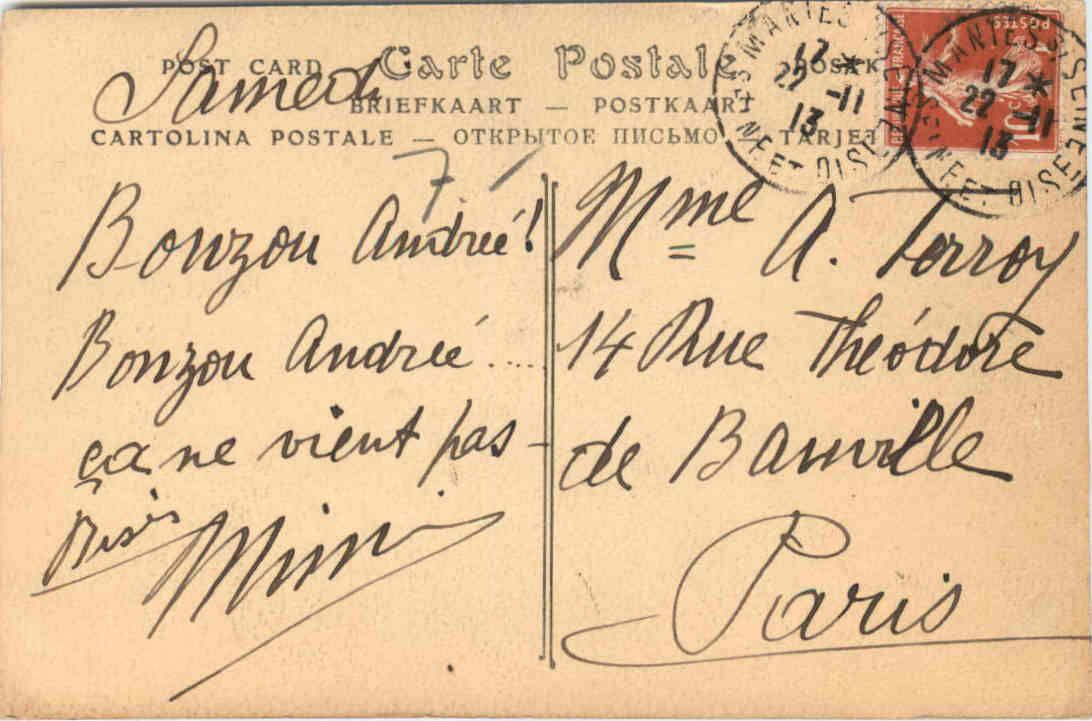 POST CARD Carte Postale
BRIEFKAART — POSTKAART
CARTOLINA POSTALE — ОТКРЫТОЕ ПИСЬМО — TARJET
Samedi
7
Bonzou Andrée!
Bonzou Andrée.....
ça ne vient pas -
Bises Mimi
MANTES S SEINE
17 *
22 -11
13
SEINE ET OISE
MANTES S SEINE
17 *
22 -11
13
SEINE ET OISE
POSTES
10
Mme A. Terroy
14 Rue Théodore
de Banville
Paris